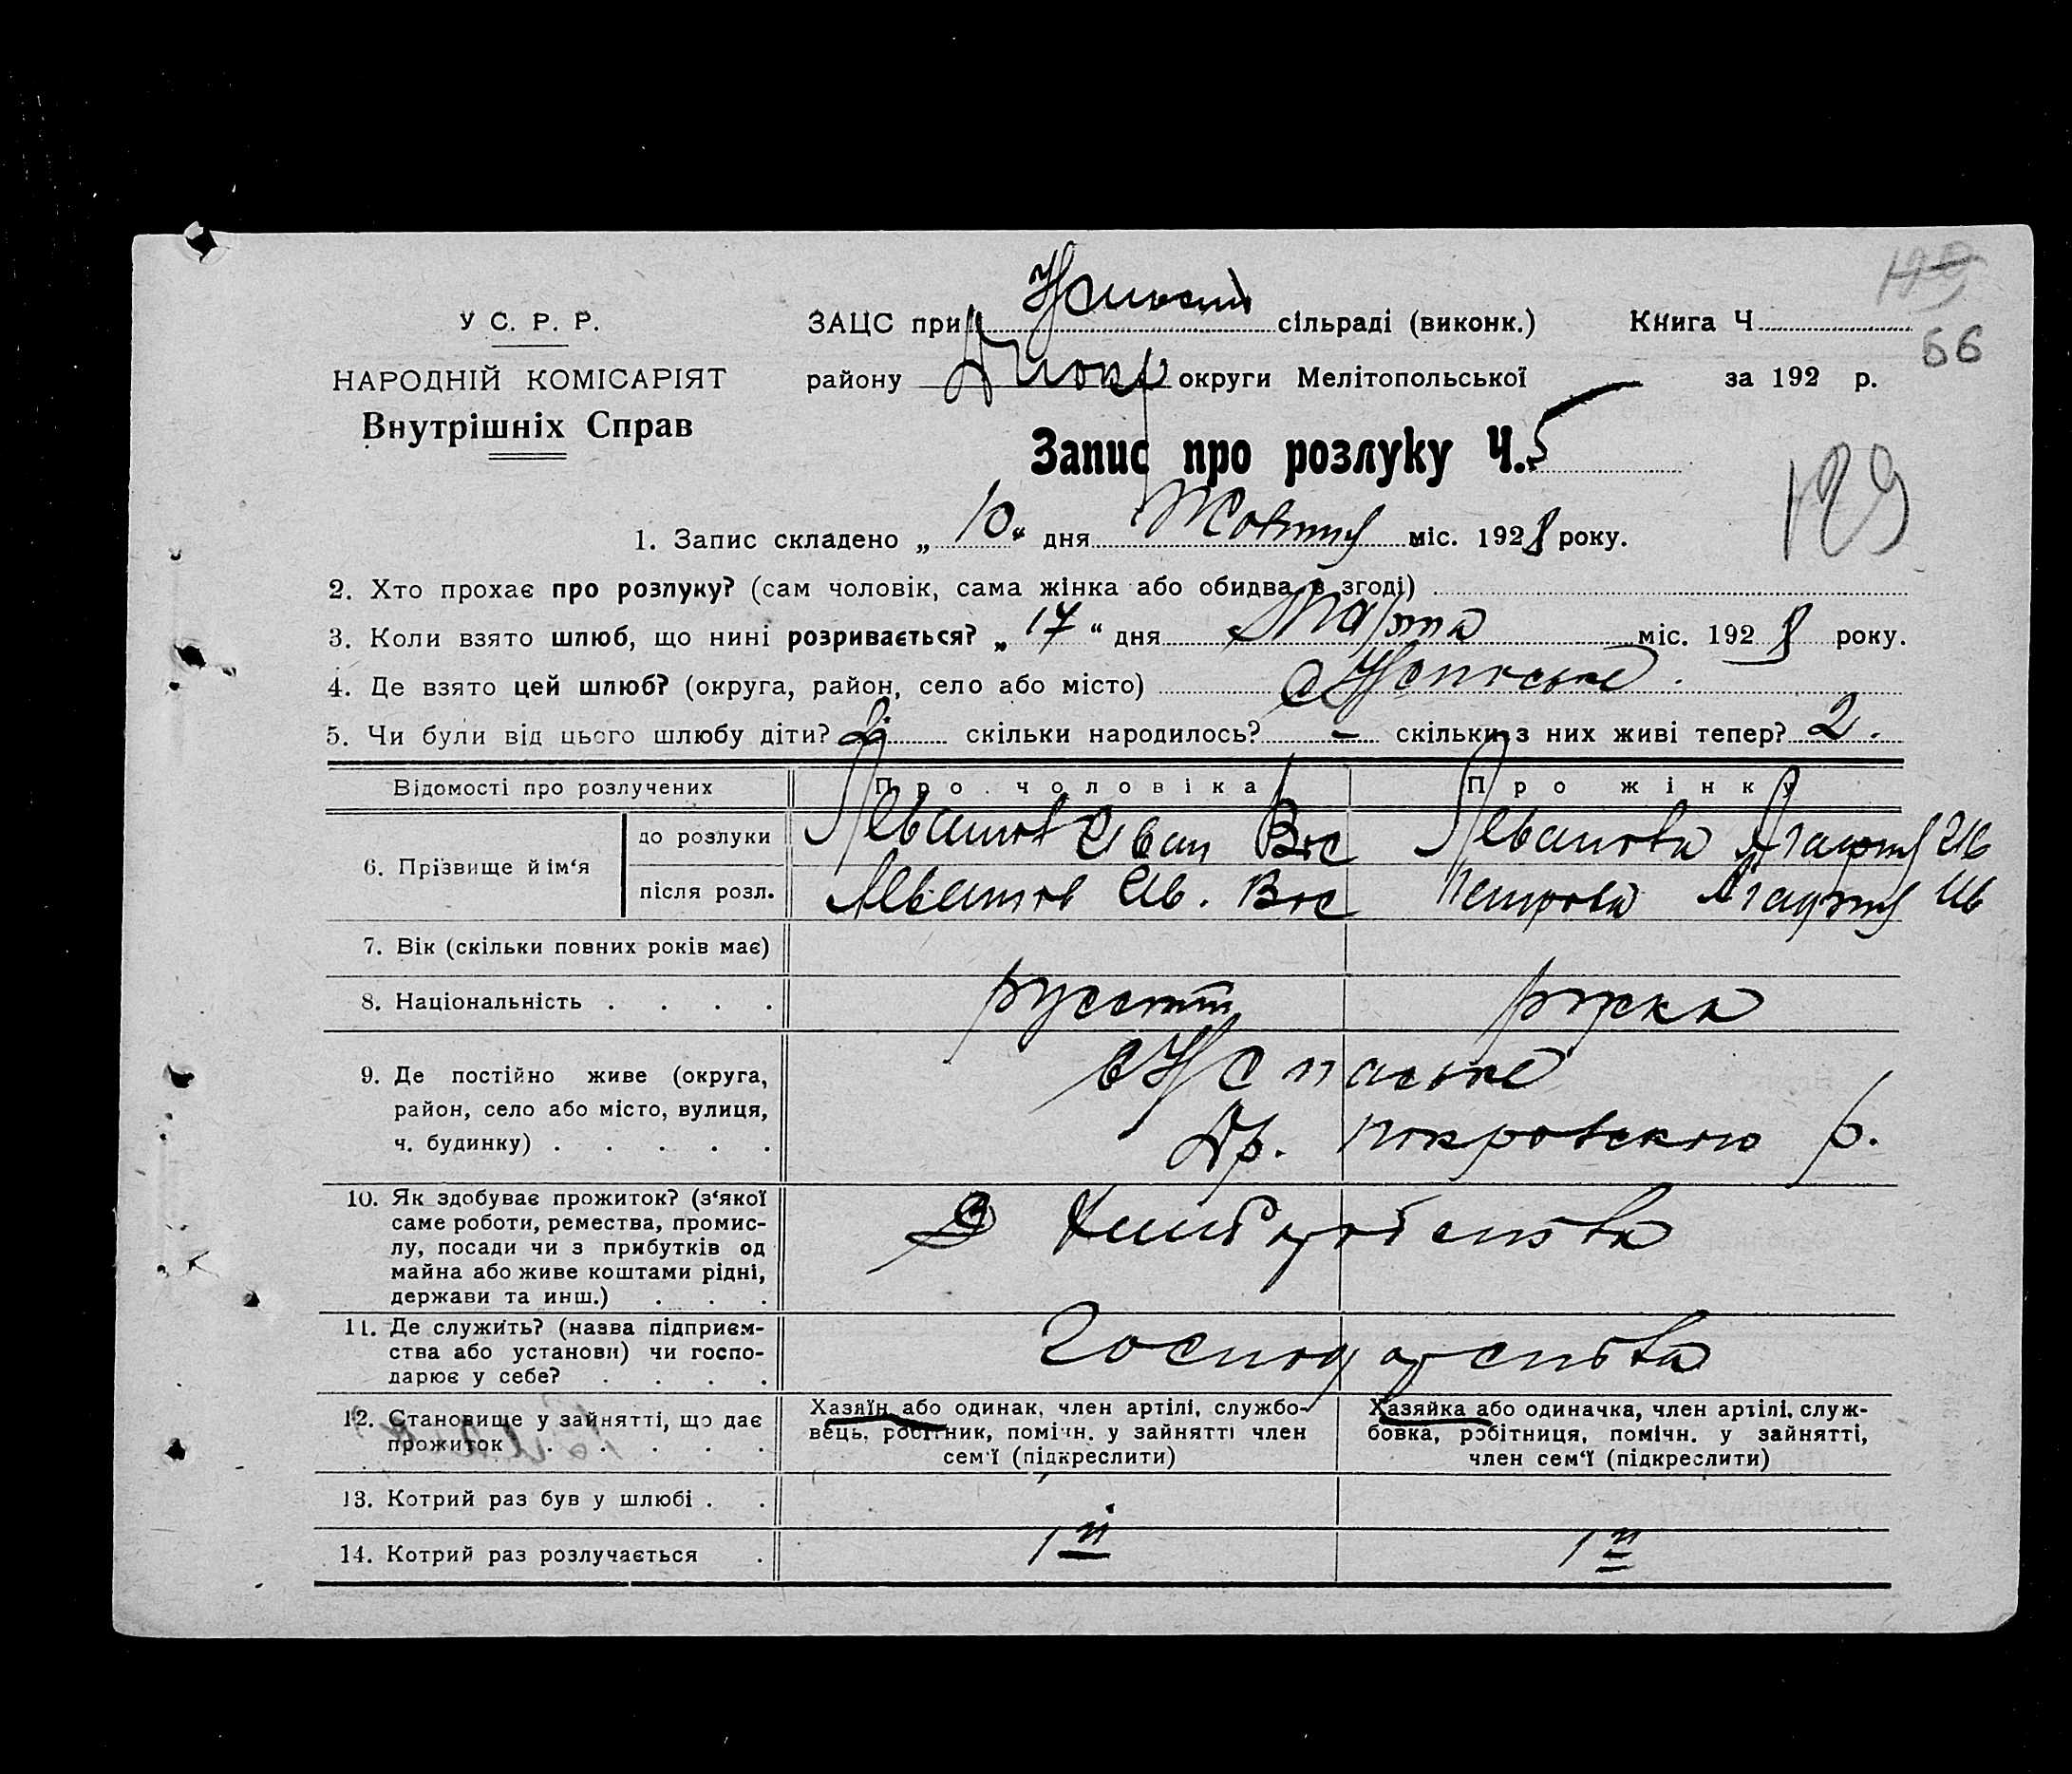 У С. Р. Р.
НАРОДНІЙ КОМІСАРІЯТ
Внутрішніх Справ
ЗАЦС при сільраді (виконк.) Книга Ч.
району округи Мелітопольської за 192 р.
129
66
Запис про розлуку Ч. 5
129
1. Запис складено „ 10 “ дня Жовтня міс. 1928 року.
2. Хто прохає про розлуку? (сам чоловік, сама жінка або обидва в згоді)
3. Коли взято шлюб, що нині розривається? „ 17 “ дня Марта міс. 1928 року.
4. Де взято цей шлюб? (округа, район, село або місто)
5. Чи були від цього шлюбу діти? скільки народилось? – скільки з них живі тепер? 2.
Відомості про розлучених Про чоловіка Про жінку
6. Прізвище й ім‘я
до розлуки Иван Вас
після розл. Ив. Вас Петрова Агафия Ив
7. Вік (скільки повних років має)
8. Національність . . . . руска
9. Де постійно живе (округа,
район, село або місто, вулиця,
ч. будинку) . . . . .
покровского р.
10. Як здобуває прожиток? (з‘якої
саме роботи, ремества, промис-
лу, посади чи з прибутків од
майна або живе коштами рідні,
держави та инш.) . . .
З хлиборобства
11. Де служить? (назва підприєм-
ства або установи) чи госпо-
дарює у себе? . . . .
господарства
12. Становище у зайнятті, що дає
прожиток . . . . .
Хазяїн або одинак, член артілі, службо-
вець, робітник, помічн. у зайнятті член
сем‘ї (підкреслити)
Хазяйка або одиначка, член артілі, служ-
бовка, робітниця, помічн. у зайнятті,
член сем‘ї (підкреслити)
13. Котрий раз був у шлюбі . .
14. Котрий раз розлучається . 1й 1й